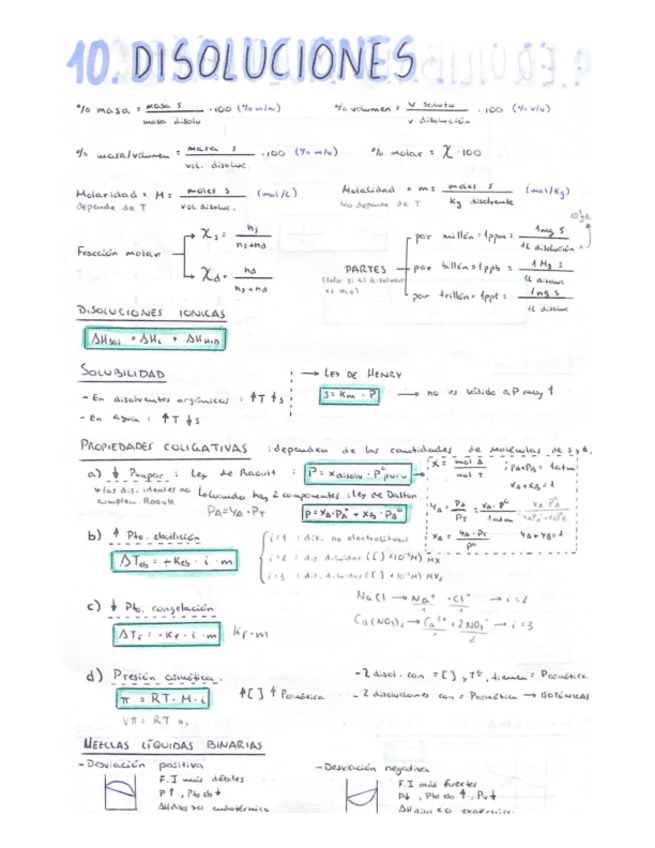 10. DISOLUCIONES
% masa = masa s / masa disolu · 100 (% m/m)
% volumen = v soluto / v disolución · 100 (% v/v)
% masa/volumen = masa s / vol. disoluc. · 100 (% m/v)
% molar = χ · 100
Molaridad = M = moles s / vol disoluc. (mol/L)
depende de T
Molalidad = m = moles s / Kg disolvente (mol/Kg)
No depende de T
Fracción molar
χs = ns / ns+nd
χd = nd / ns+nd
PARTES
por millón = 1ppm = 1mg s / 1L disolución
por billón = 1ppb = 1 Mg s / 1L disoluc
por trillón = 1ppt = 1ng s / 1L disoluc
DISOLUCIONES IONICAS
ΔHsol = ΔHL + ΔHHID
SOLUBILIDAD
- En disolventes orgánicos : ↑T ↑s
- En agua : ↑T ↓s
→ LEY DE HENRY
s = Km · P → no es válido a P muy ↑
PROPIEDADES COLIGATIVAS : dependen de las cantidades de moléculas de s y d.
a) ↓ Pvapor : Ley de Raoult : P = xdisolv · P°puro
las dis. ideales no cumplen Raoult
Cuando hay 2 componentes : Ley de Dalton
PA = YA · PT
P = xA · PA° + xB · PB°
PA + PB = 1atm
xA + xB = 1
YA + YB = 1
b) ↑ Pto. ebullición
ΔTeb = + Keb · i · m
i = 1 : dis. no electrolitos
i = 2 = dis. diluidas ([ ] < 10⁻³M) MX
i = 3 = dis. diluidas ([ ] < 10⁻³M) MX₂
c) ↓ Pto. congelación
ΔTf = - Kf · i · m
Kf · m
NaCl → Na⁺ + Cl⁻ → i = 2
Ca(NO₃)₂ → Ca²⁺ + 2NO₃⁻ → i = 3
d) Presión osmótica.
π = RT · M · i
↑[ ] ↑ Posmótica
Vπ = RT n.
- 2 disol. con = [ ] y Tª, tienen = Posmótica
- 2 disoluciones con = Posmótica → ISOTÓNICAS
MEZCLAS LÍQUIDAS BINARIAS
- Desviación positiva
F.I más débiles
P ↑, Pto eb ↓
ΔHdis > 0 endotérmico
- Desviación negativa
F.I más fuertes
P↓, Pto eb ↑, Pv↓
ΔH disu < 0 exotérmico